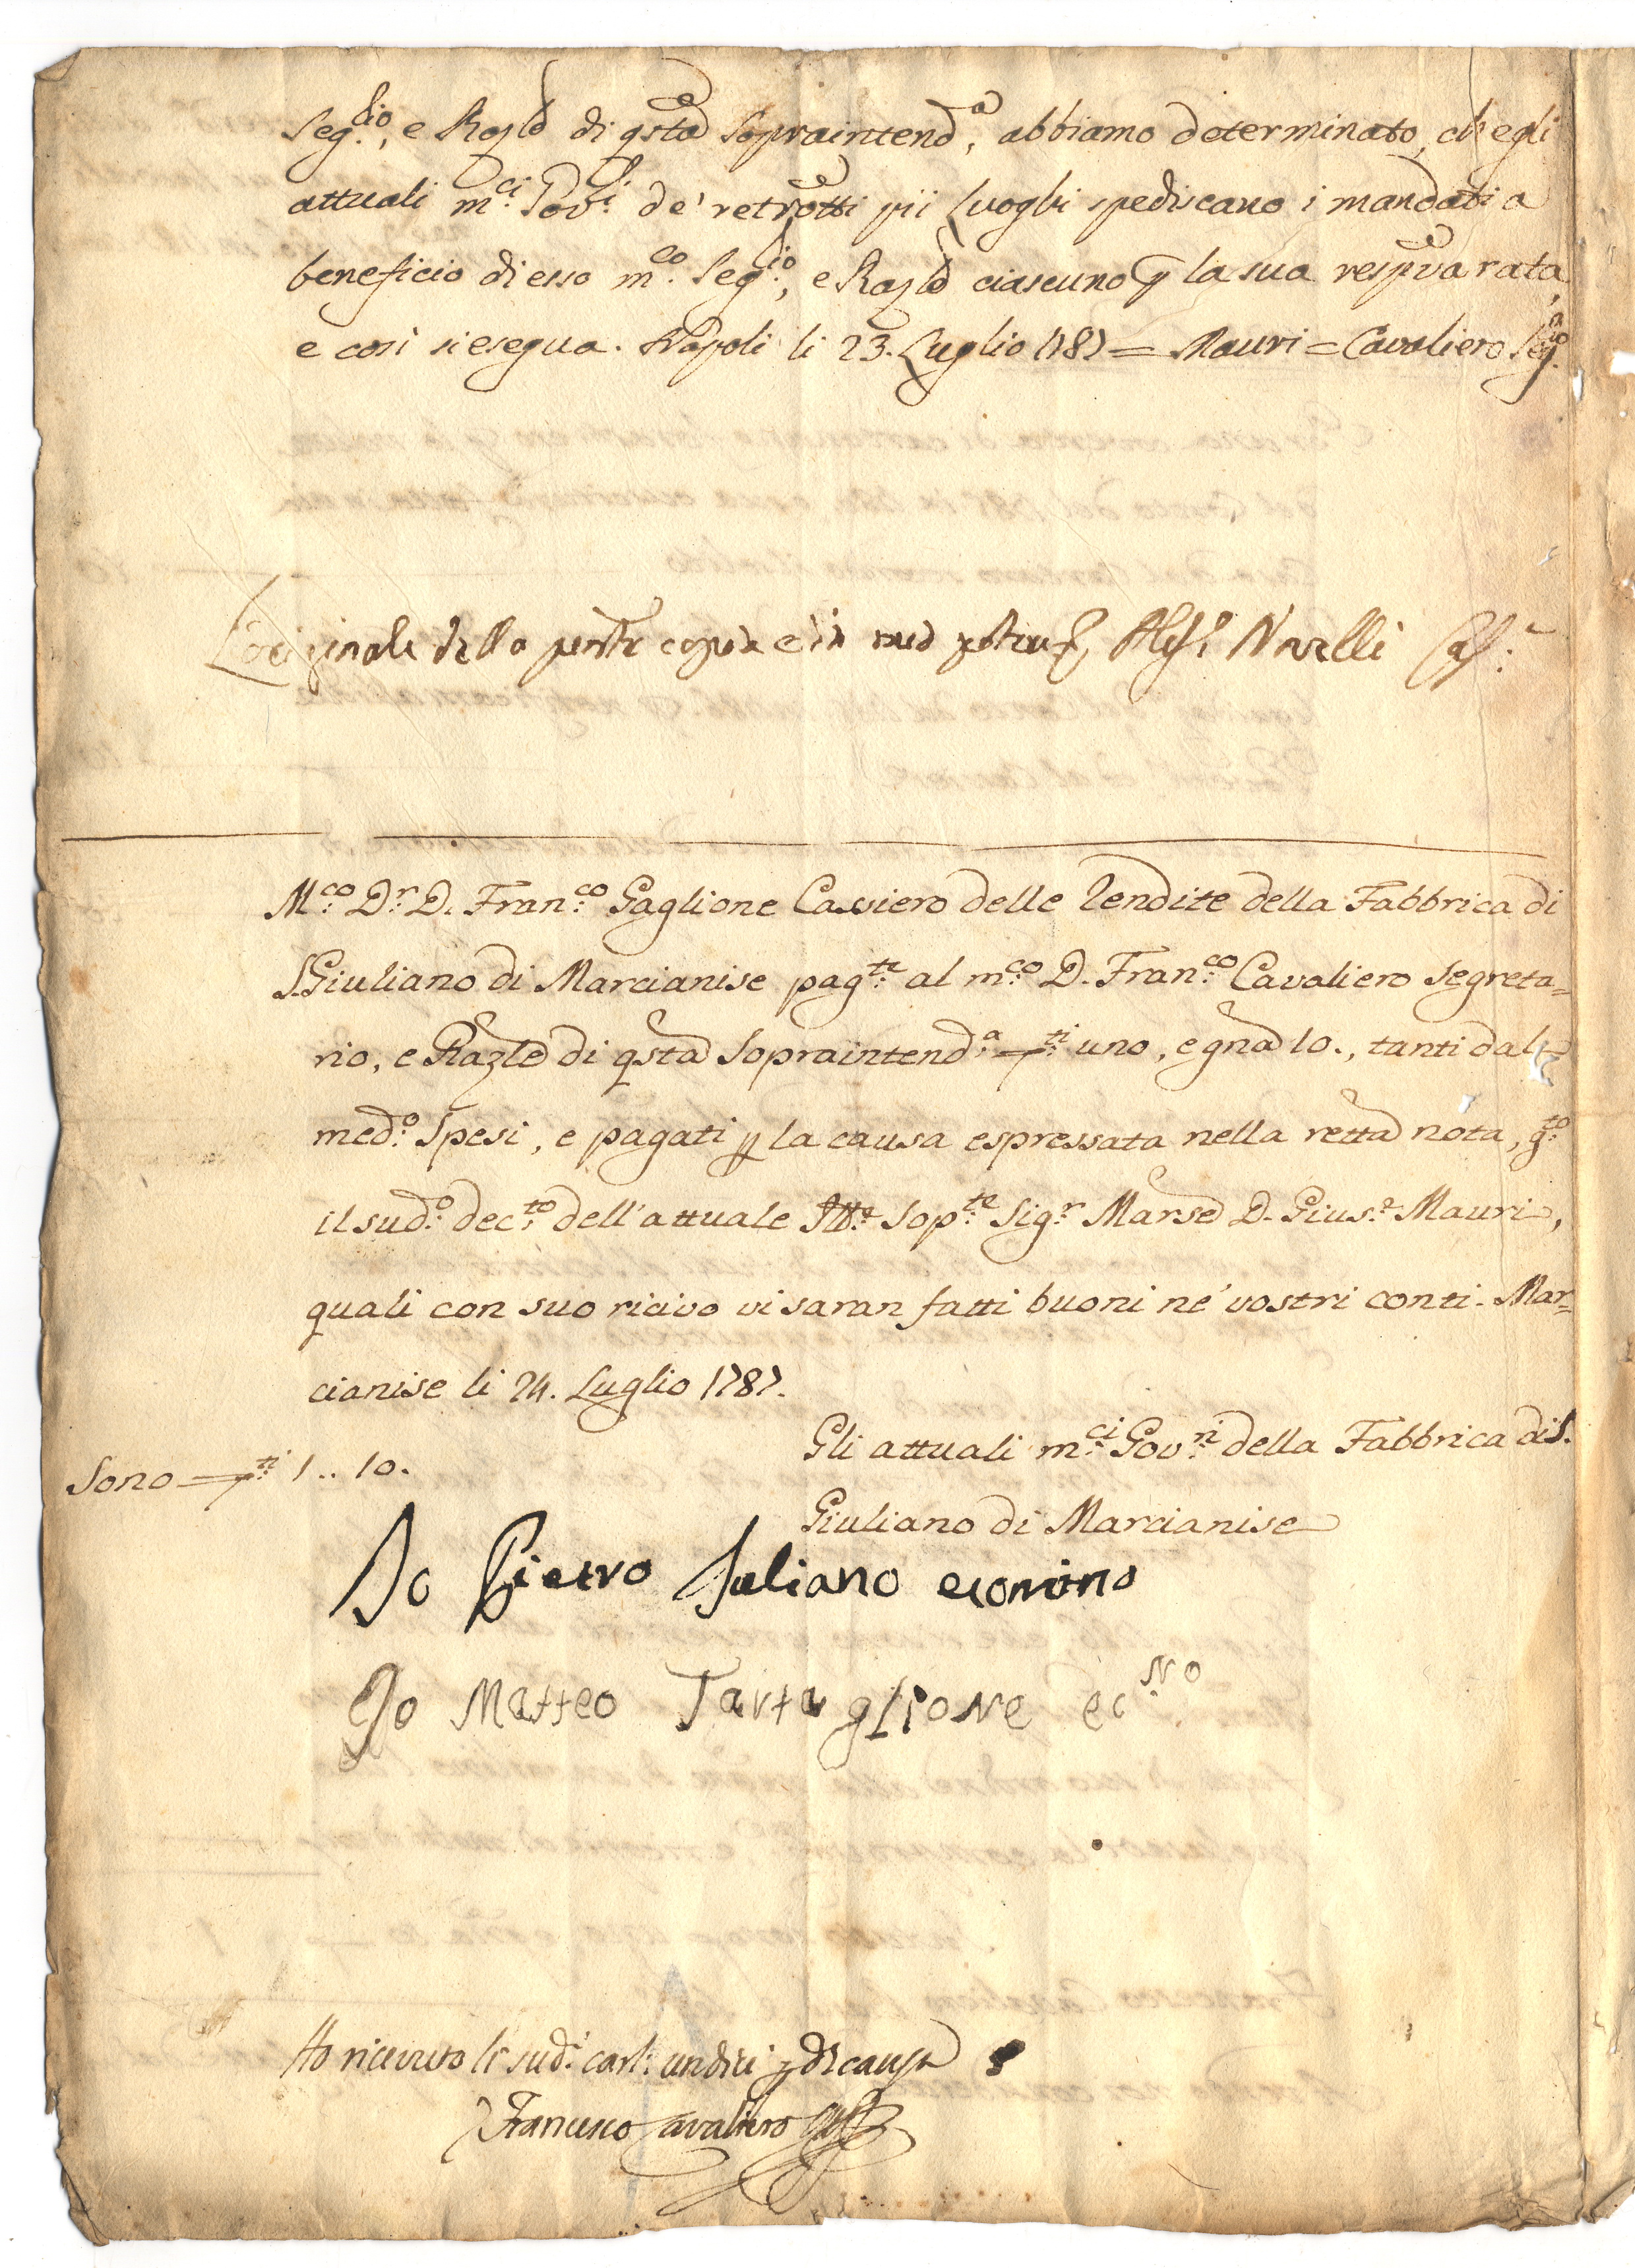 Seg.rio, e Raz.le di q.sta Sopraintend.a, abbiamo determinato, ch'egli
attuali m.ci Gov.i de' retrotti pii Luoghi spediscano i mandati a
beneficio di esso m.co Seg.rio, e Raz.le ciascuno p la sua respva rata,
e così si esegua. Napoli li 23. Luglio 1787 = Mauri = Cavaliero Seg.rio
L'originale della pnte copia è in mio potere Novelli Cass.e
M.co D.r D. Fran.co Gaglione Cassiero delle Rendite della Fabbrica di
S. Giuliano di Marcianise pag.te al m.co D. Fran.co Cavaliero Segreta=
rio, e Razle di qsta Sopraintend.a ti uno, e gna 10., tanti dal
med.o Spesi, e pagati p la causa espressata nella retta nota, g.to
il sud.o dec.to dell'attuale Sop.te Sig.r Marse D. Gius.e Mauri,
quali con suo ricivo vi saran fatti buoni ne' vostri conti. Mar=
cianise li 24. Luglio 1787.
Gli attuali m.ci Gov.ni della Fabbrica di S.
Sono ti 1 .. 10.
Giuliano di Marcianise
Io Pietro Iuliano economo
Io Matteo Tartaglione ec.No
Ho ricevuto li sud.i carl. undici p d.a causa
Francesco Cavaliero